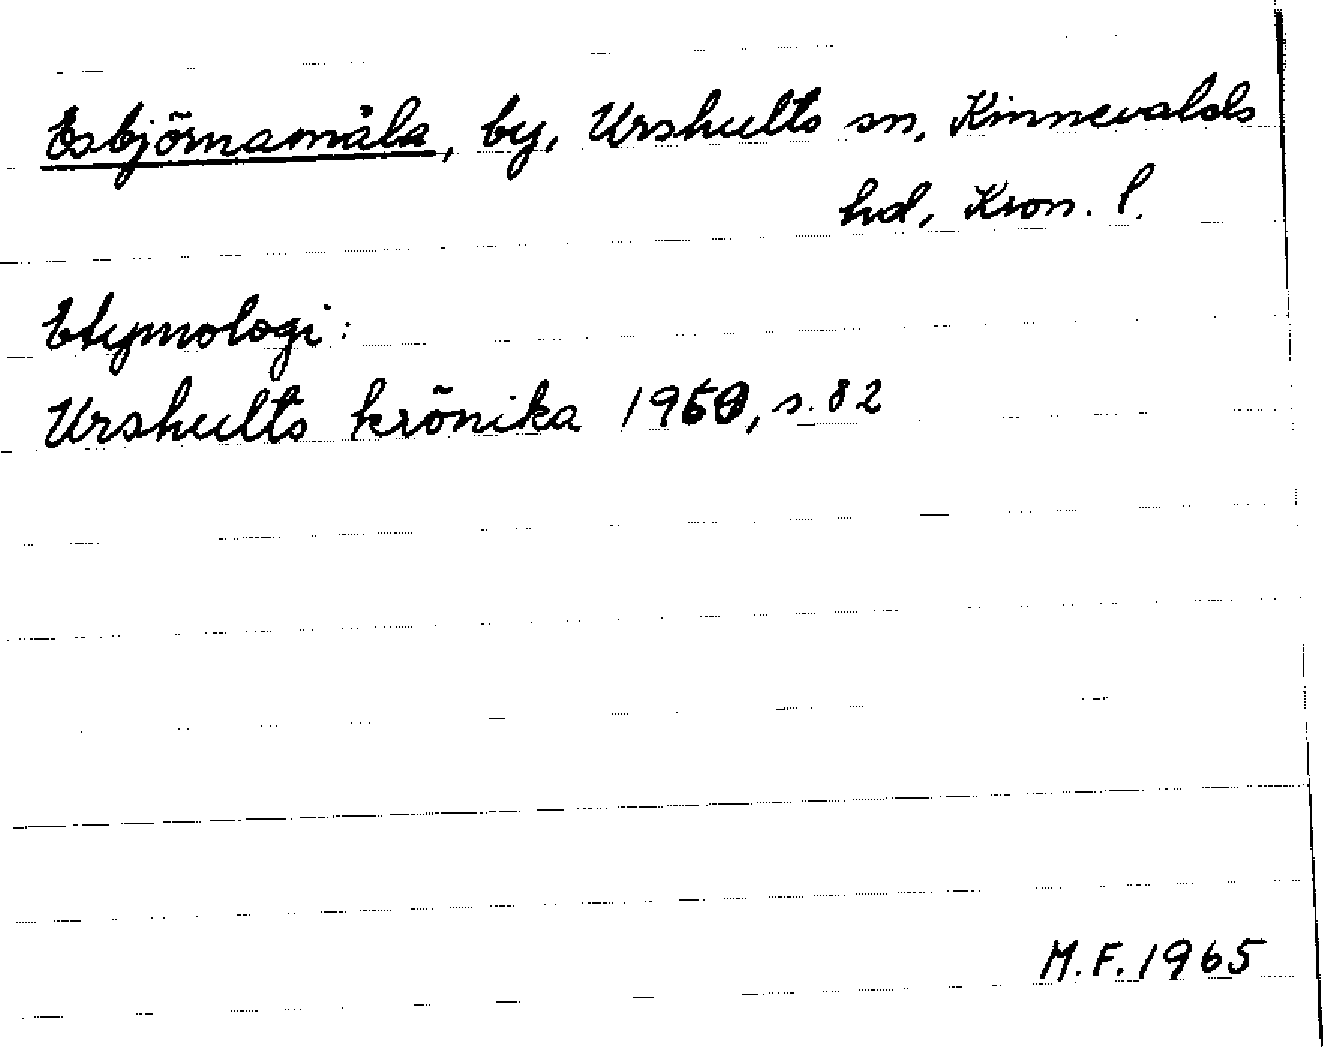 Esbjörnamåla, by, Urshults sn, Kinnevalds
hd, Kron. l.
Etymologi:
Urshults krönika s. 82
M.F. 1965